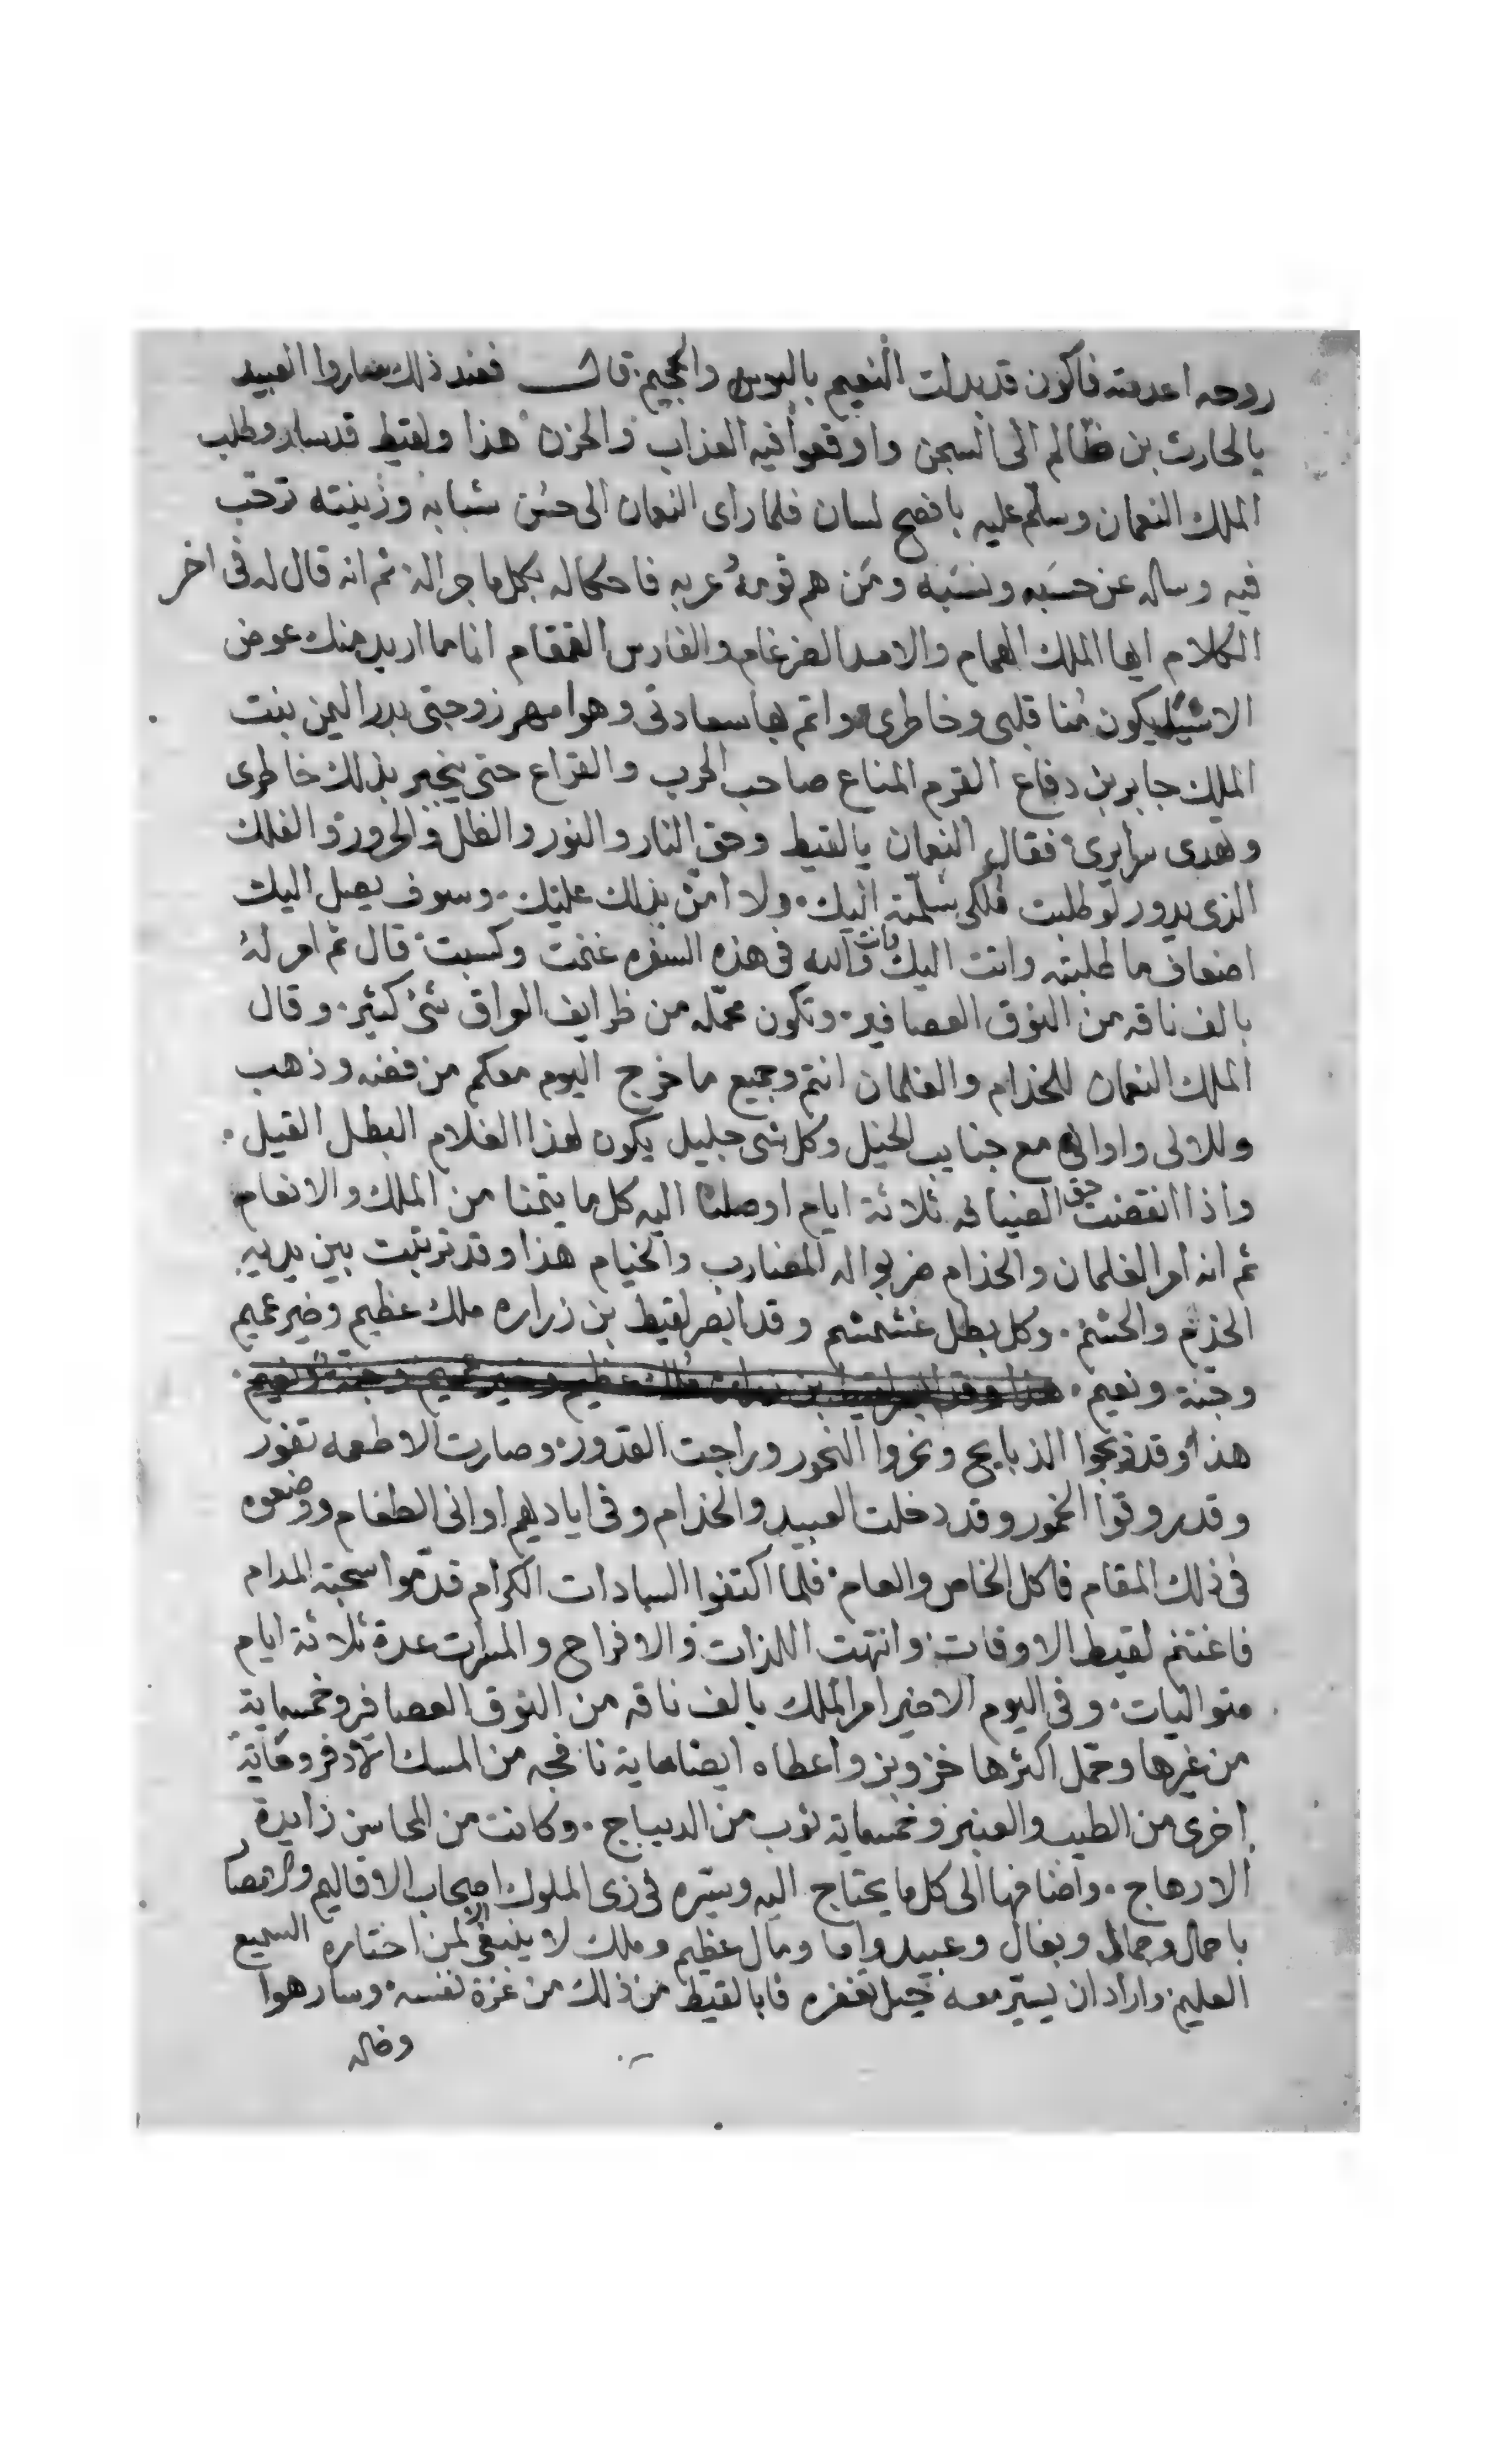 روحه اعدمته فاكون قد بدلت النعيم بالبوس والجحيم. قال فعند ذلك ساروا العبيد
بالحارث بن ظالم الى السجن واوقعوا فيه العذاب والحزن هذا ولقيط قد سار وطلب
الملك النعمان وسلم عليه بافصح لسان فلما راى النعمان الى حسن شبابه وزينته ترحب
فيه وساله عن حسبه ونسبه ومن هم قومه وعربه فاحكا له بكل ما جرا له ثم انه قال له فى اخر
الكلام ايها الملك الهمام والاسد الضرغام والفارس القمقام انا ما اريد منك عوض
الا شيئ يكون منا قلبى وخاطرى واتم بها سعادتى وهوا مهر زوجتى بدر اليمن بنت
الملك جابر بن دفاع القرم المناع صاحب الحرب والقراع حتى ينجبر بذلك خاطرى
وتهدى سرايرى فقال النعمان يا لقيط وحق النار والنور والظل والحرور والفلك
الذى يدور لو طلبت ملكى سلمته اليك. ولا امن بذلك عليك. وسوف يصل اليك
اضعاف ما طلبته واتت اليك وانت والله فى هذه السفره غنمت وكسبت قال ثم امر له
بالف ناقه من النوق العصافير. وتكون محمله من ظرايف العراق شئ كثير. وقال
الملك النعمان للخدام والغلمان انتم وجميع ما خرج اليوم معكم من فضه وذهب
وللالى واوانى مع جنايب الخيل وكل شى جليل يكون لهذا الغلام البطل القيل.
واذا انقضت حق الضيافه ثلاثة ايام اوصلنا اليه كل ما يتمنا من الملك والانعام
ثم انه امر الغلمان والخدام ضربوا له المضارب والخيام هذا وقد ترتبت بين يديه
الخدم والحشم. وكل بطل غشمشم وقد ابصر لقيط بن زراره ملك عظيم وخير عميم
وجنة ونعيم. هذا وقد ابصر لقيط بن زراره ملك عظيم وخير عميم وجنة ونعيم.
هذا وقد ذبحوا الذبايح ونحروا النحور وراجت القدور وصارت الاطعمه تفور
وقد روقوا الخمور وقد دخلت العبيد والخدام وفى اياديهم اوانى الطعام ووضعوه
فى ذلك المقام فاكل الخاص والعام. فلما اكتفوا السادات الكرام قدموا المدام
فاغتنم لقيط الاوقات وانتهت اللذات والافراح والمسرات عدة ثلاثة ايام
متواليات. وفى اليوم الاخير امر الملك بالف ناقه من النوق العصافر وخمسماية
من غيرها وحمل اكثرها خز وبز واعطاه ايضا ماية نافجه من المسك الادفر وماية
اخرى من الطيب والعنبر وخمسماية ثوب من الديباج. وكانت من المحاسن زايدة
الارهاج. واضافها الى كل ما يحتاج اليه وسيره فى زى الملوك اصحاب الاقاليم
باحمال وجمال وبغال وعبيد واما ومال عظيم وملك لا ينبغى الا لمن اختاره السميع
العليم. واراد ان يسير معه خيل تغفره فابا لقيط من ذلك من عزة نفسه. وسار هوا
وخاله